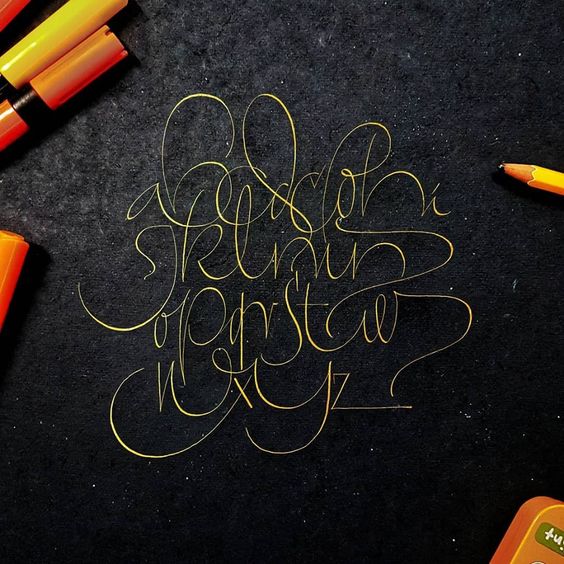 abcdefghi
jklmn
opqrstuv
wxyz